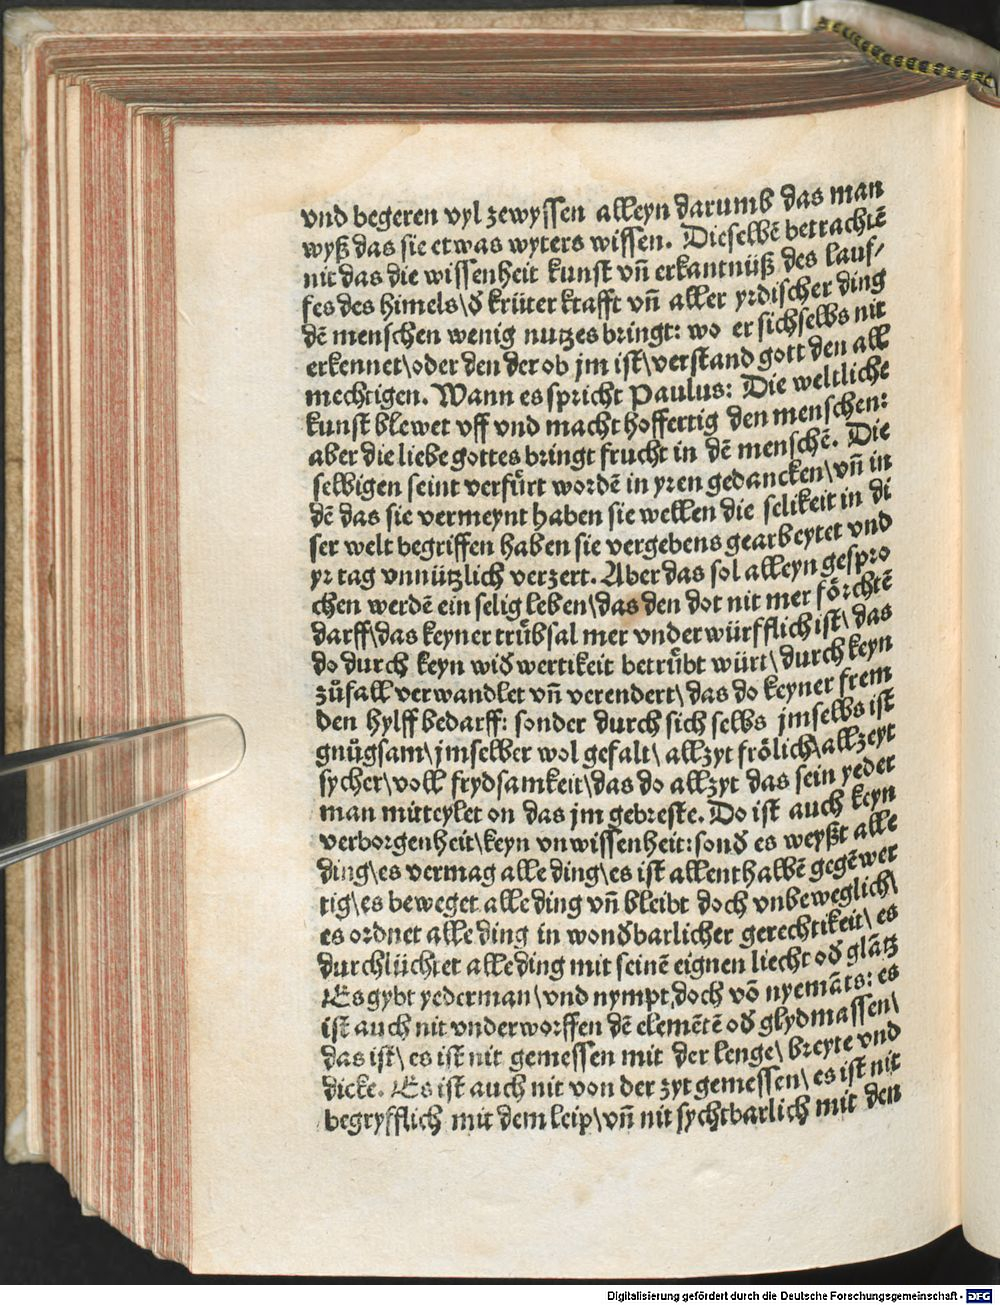 vnd begeren vyl zewyssen alleyn darumb das man
wyß das sie etwas wyters wissen. Dieselbē betrachtē
nit das die wissenheit kunst vñ erkantnüß des lauf⸗
fes des himels\ð krüter krafft vñ aller yrdischer ding
dē menschen wenig nutzes bringt: wo er sichselbs nit
erkennet\oder den der ob jm ist\verstand gott den all
mechtigen. Wann es spricht Paulus: Die weltliche
kunst blewet vff vnd macht hoffertig den menschen:
aber die liebe gottes bringt frucht in dē menschē. Die
selbigen seint verfürt wordē in yren gedancken\vñ in
dē das sie vermeynt haben sie wellen die selikeit in di
ser welt begriffen haben sie vergebens gearbeytet vnd
yr tag vnnützlich verzert. Aber das sol alleyn gespro
chen werdē ein selig leben\das den dot nit mer förchtē
darff\das keyner trübsal mer vnderwürfflich ist\ das
do durch keyn wiðwertikeit betrübt würt\ durch keyn
zůfall verwandlet vñ verendert\ das do keyner frem
den hylff bedarff: sonder durch sich selbs jmselbs ist
gnůgsam\jmselber wol gefalt\ allzyt frölich\allzeyt
sycher\voll frydsamkeit\das do allzyt das sein yeder
man mitteylet on das jm gebreste. Do ist auch keyn
verborgenheit\keyn vnwissenheit:sonð es weyßt alle
ding\es vermag alle ding\es ist allenthalbē gegēwer
tig\es beweget alle ding vñ bleibt doch vnbeweglich\
es ordnet alle ding in wonðbarlicher gerechtikeit\ es
durchlüchtet alle ding mit seinē eignen liecht oð glātz
Es gybt yederman\vnd nympt doch vō nyemāts: es
ist auch nit vnderworffen dē elemētē oð glydmassen\
das ist\ es ist nit gemessen mit der lenge\ breyte vnd
dicke. Es ist auch nit von der zyt gemessen\ es ist nit
begryfflich mit dem leip\vñ nit sychtbarlich mit den
Digitalisierung gefördert durch die Deutsche Forschungsgemeinschaft - DFG